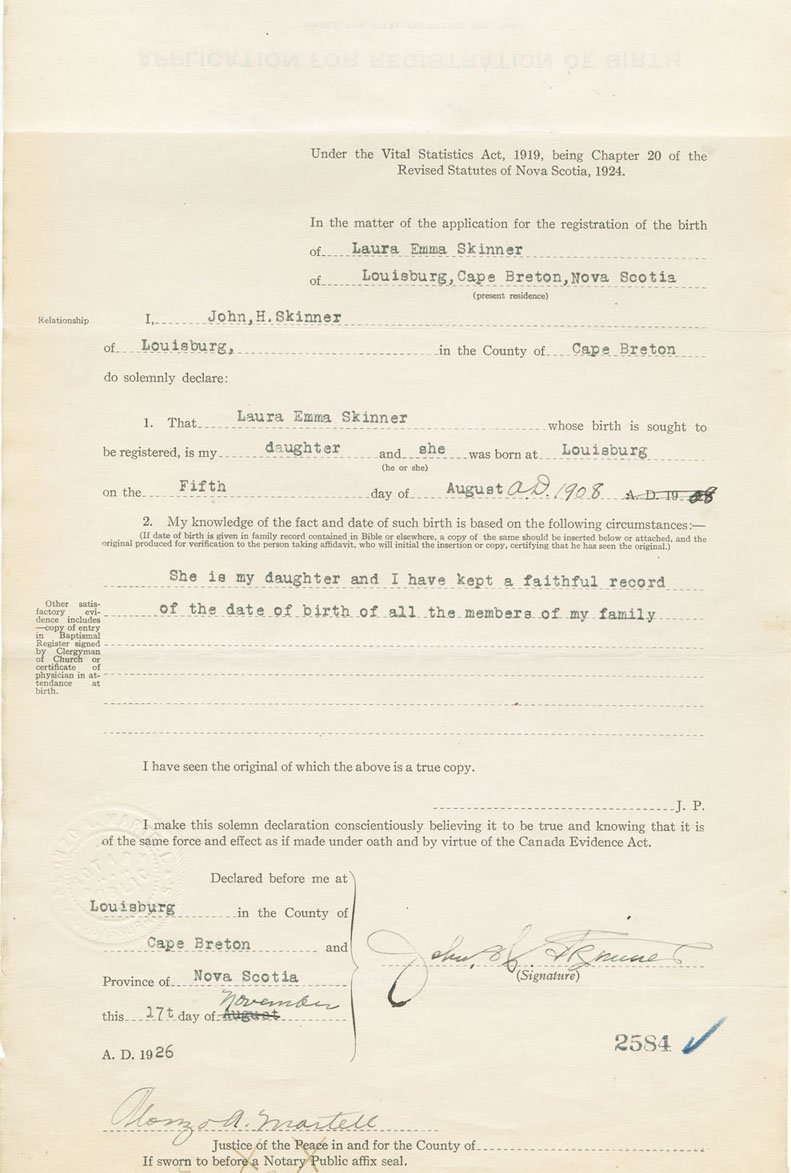 APPLICATION FOR REGISTRATION OF BIRTH
Under the Vital Statistics Act, 1919, being Chapter 20 of the
Revised Statutes of Nova Scotia, 1924.
In the matter of the application for the registration of the birth
of Laura Emma Skinner
of Louisburg, Cape Breton, Nova Scotia
(present residence)
Relationship I, John, H. Skinner
of Louisburg, in the County of Cape Breton
do solemnly declare:
1. That Laura Emma Skinner whose birth is sought to
be registered, is my daughter and she was born at Louisburg
(he or she)
on the Fifth day of August A.D. 1908 A. D. 19 08
2. My knowledge of the fact and date of such birth is based on the following circumstances:—
(If date of birth is given in family record contained in Bible or elsewhere, a copy of the same should be inserted below or attached, and the
original produced for verification to the person taking affidavit, who will initial the insertion or copy, certifying that he has seen the original.)
She is my daughter and I have kept a faithful record
of the date of birth of all the members of my family
Other satis-
factory evi-
dence includes
—copy of entry
in Baptismal
Register signed
by Clergyman
of Church or
certificate of
physician in at-
tendance at
birth.
I have seen the original of which the above is a true copy.
J. P.
I make this solemn declaration conscientiously believing it to be true and knowing that it is
of the same force and effect as if made under oath and by virtue of the Canada Evidence Act.
Declared before me at
Louisburg in the County of
Cape Breton and
Province of Nova Scotia
November
this 17t day of August
A. D. 1926
John H. Skinner
(Signature)
2584
Alonzo A. Martell
Justice of the Peace in and for the County of
If sworn to before a Notary Public affix seal.